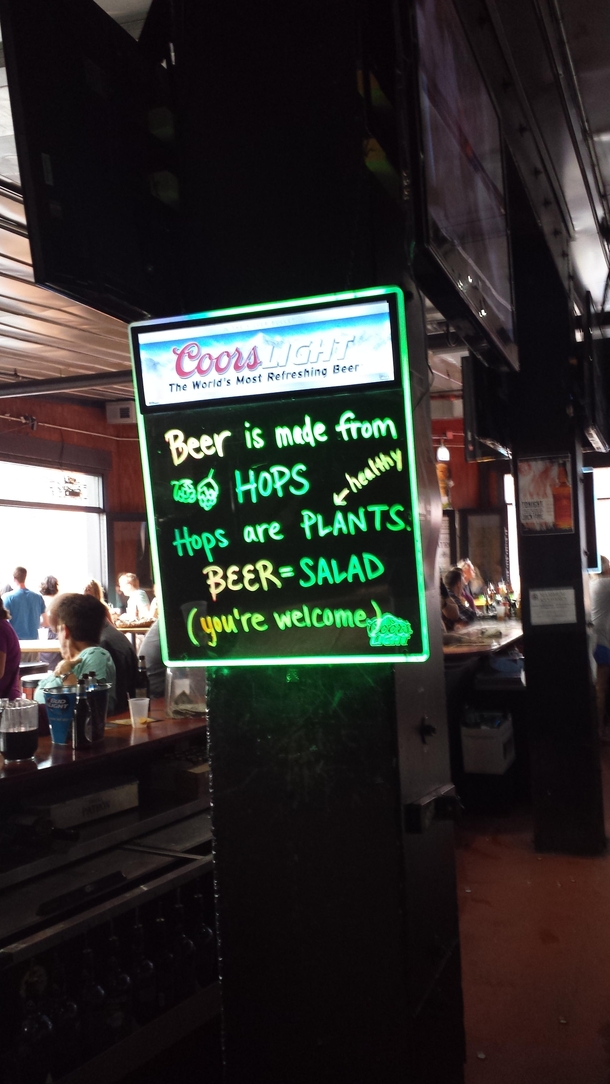 Coors LIGHT
The World's Most Refreshing Beer
Beer is made from
HOPS
healthy
Hops are PLANTS.
BEER = SALAD
(you're welcome)
Coors
LIGHT
BUD
LIGHT